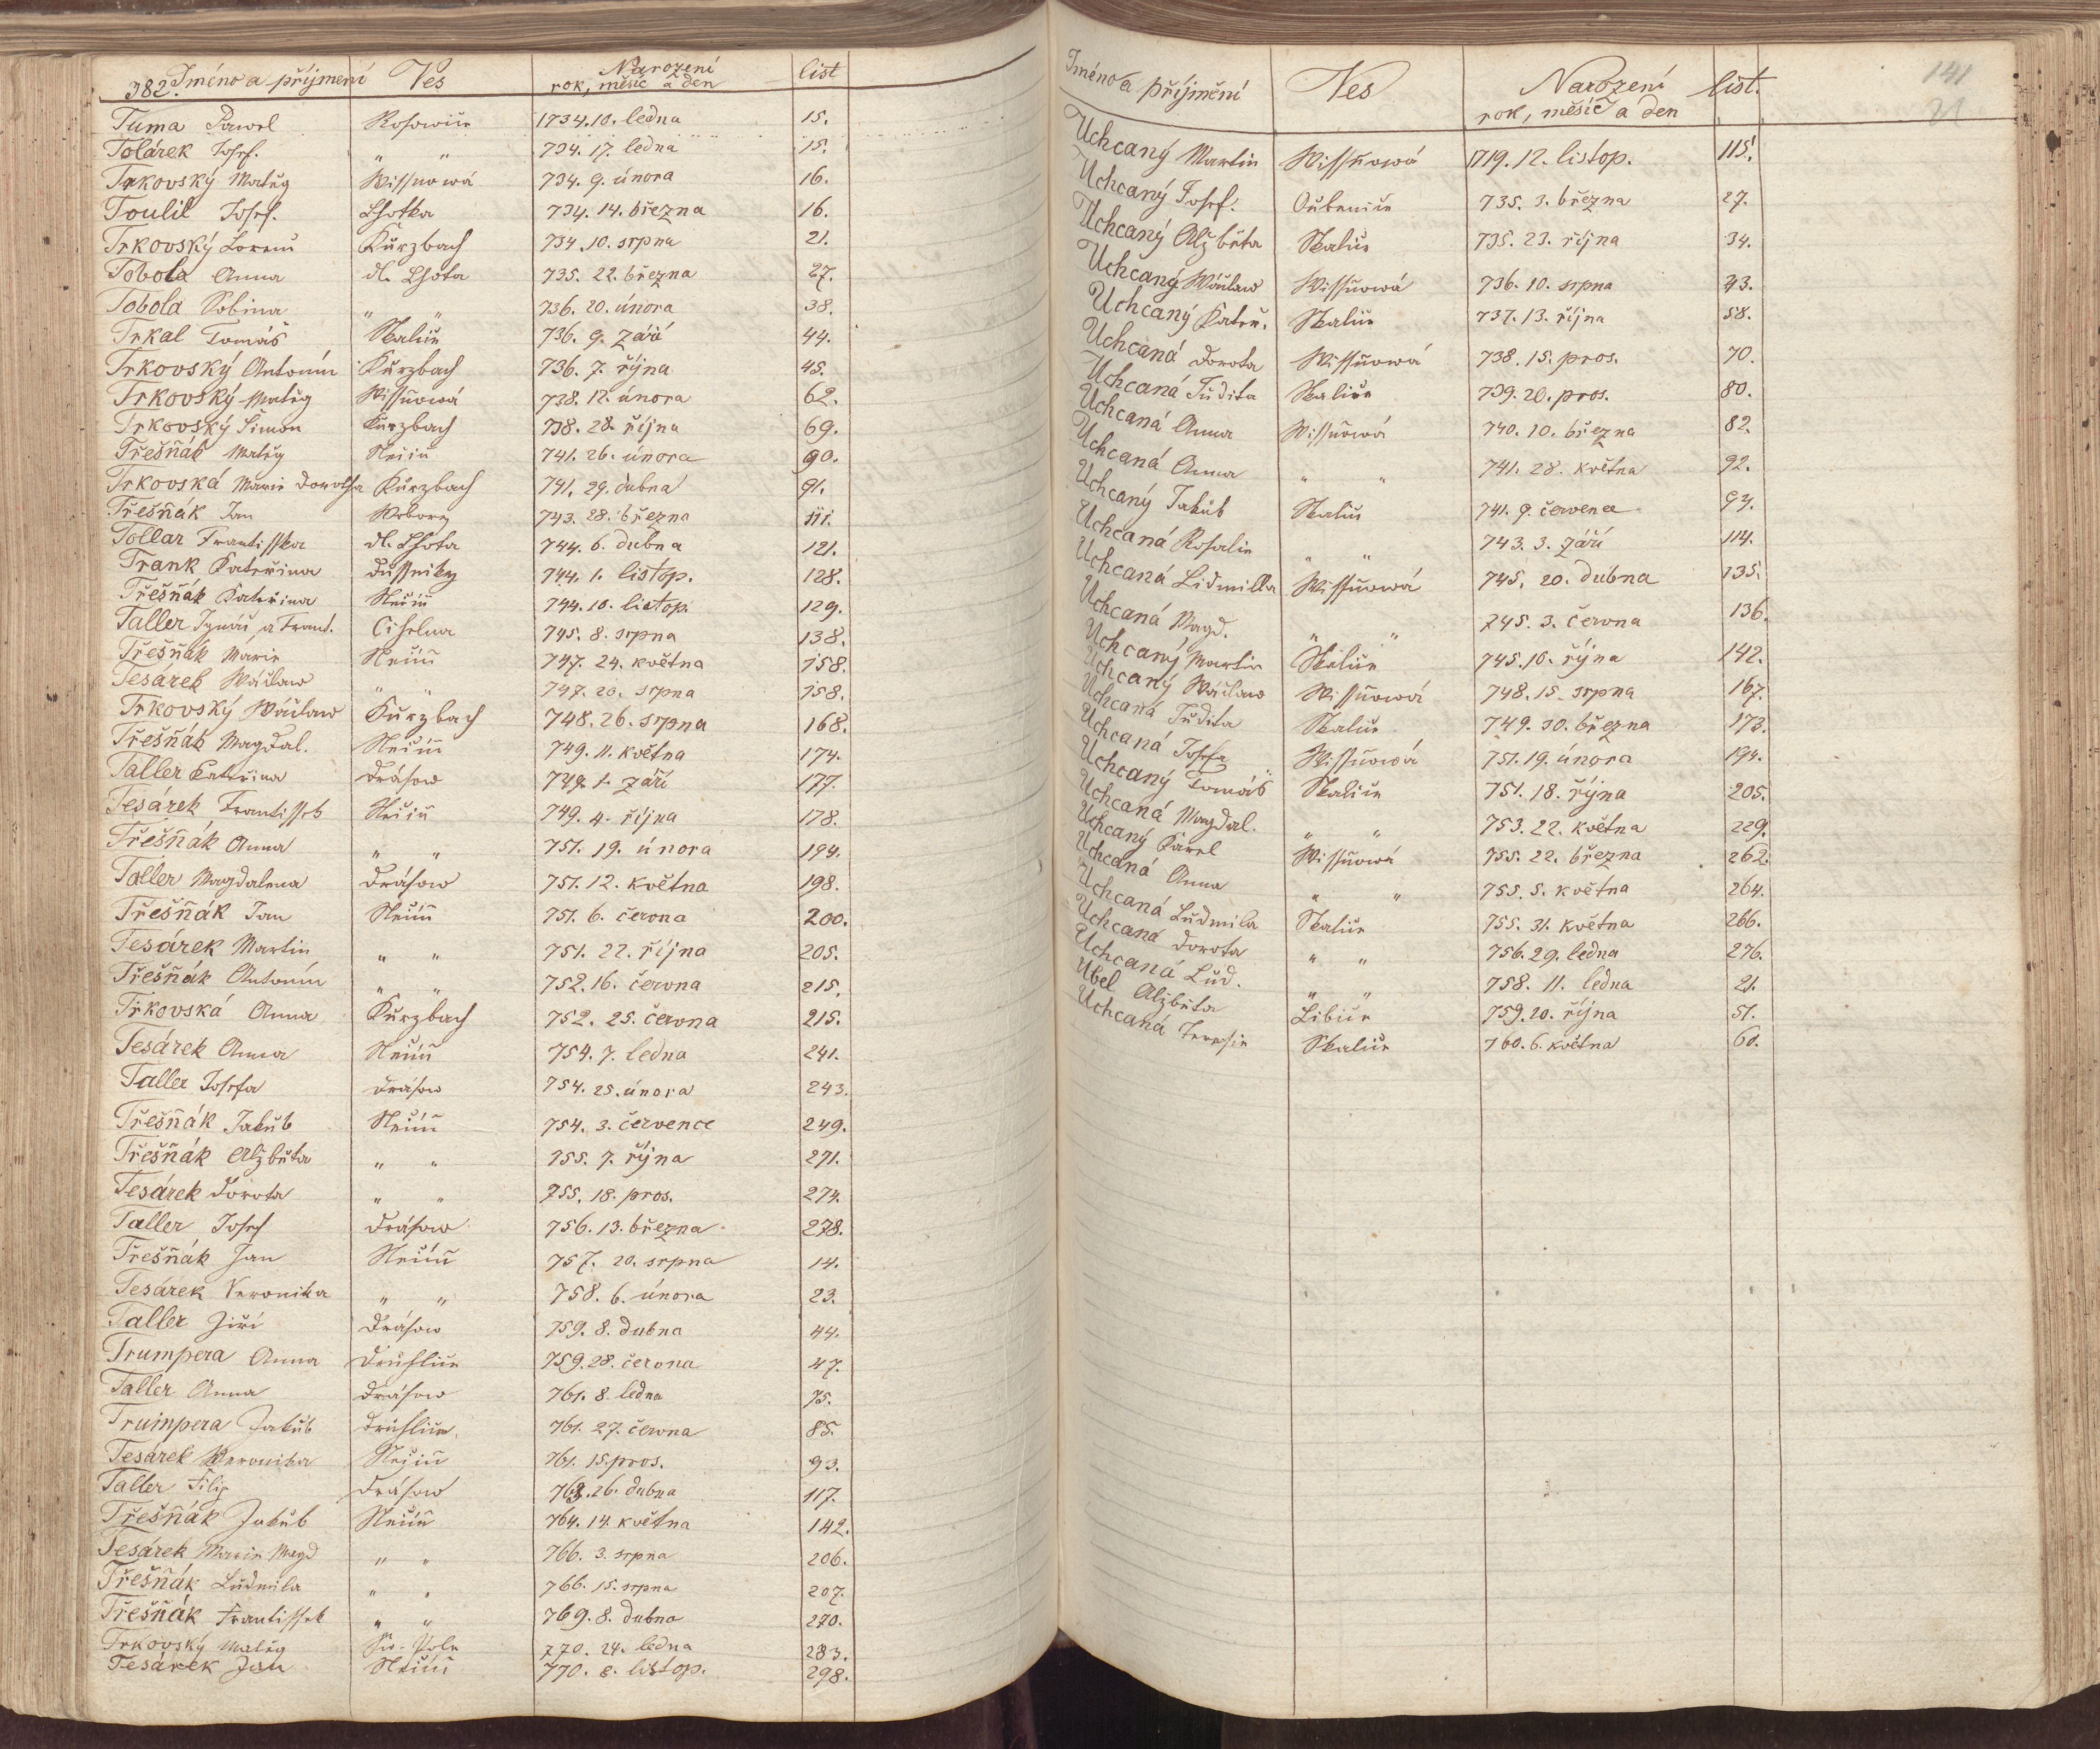 382. Jméno a příjmení Ves Narození rok, měsíc a den list
Tuma Pawel Rosowice 1734. 10. ledna 15.
Tolárek Josef. „ „ 734. 17. ledna 15.
Trkovský Matěg Wissnowá 734. 9. února 16.
Toulil Josef. Lhotka 734. 14. března 16.
Trkovský Lorenc Kurzbach 734. 10. srpna 21.
Tobola Anna dl. Lhota 735. 22. března 27.
Tobola Sobina „ „ 736. 20. února 38.
Trkal Tomáš Skalice 736. 9. září 44.
Trkovský Antonín Kurzbach 736. 7. října 45.
Trkovský Matěg Wissňowá 738. 12. února 62.
Trkovský Šimon Kurzbach 738. 28. října 69.
Třešňák Matěg Nečin 741. 26. února 90.
Trkovská Marie Dorotha Kurzbach 741. 29. dubna 91.
Třešňák Jan 743. 28. března 111.
Tollar Frantisska dl. Lhota 744. 6. dubna 121.
Trank Kateřina Dussniky 744. 1. listop. 128.
Třešňák Kateřina Nečin 744. 10. listop. 129.
Taller Ignác a Frant. Cihelna 745. 8. srpna 138.
Třešňák Marie Nečin 747. 24. května 158.
Tesárek Wáclaw „ „ 747. 20. srpna 158.
Trkovský Wáclaw Kurzbach 748. 26. srpna 168.
Třešňák Magdal. Nečin 749. 11. května 174.
Taller Kateřina Drásow 749. 1. září 177.
Tesárek Frantissek Nečin 749. 4. října 178.
Třešňák Anna „ „ 751. 19. února 194.
Taller Magdalena Drásow 751. 12. května 198.
Třešňák Jan Nečin 751. 6. června 200.
Tesárek Martin „ „ 751. 22. října 205.
Třešňák Antonín „ „ 752. 16. června 215.
Trkovská Anna Kurzbach 752. 25. června 215.
Tesárek Anna Nečin 754. 7. ledna 241.
Taller Josefa Drásow 754. 25. února 243.
Třešňák Jakub Nečin 754. 3. července 249.
Třešňák Alžběta „ „ 755. 7. října 271.
Tesárek Dorota „ „ 755. 18. pros. 274.
Taller Josef Drásow 756. 13. března 278.
Třešňák Jan Nečin 757. 20. srpna 14.
Tesárek Veronika „ „ 758. 6. února 23.
Taller Jiří Drásow 759. 8. dubna 44.
Trumpera Anna Druhlice 759. 28. června 47.
Taller Anna Drásow 761. 8. ledna 75.
Trumpera Jakub Druhlice 761. 27. června 85.
Tesárek Weronika Nečin 761. 15. pros. 93.
Taller Filip Drásow 763. 26. dubna 117.
Třešňák Jakub Nečin 764. 14. května 142.
Tesárek Marie Magd „ „ 766. 3. srpna 206.
Třešňák Ludmila „ „ 766. 15. srpna 207.
Třešňák Frantissek „ „ 769. 8. dubna 270.
Trkovský Matěg Sw. Pole 770. 24. ledna 283.
Tesárek Jan Nečin 770. 8. listop. 298.
141
Jméno a příjmění Ves Narození rok, měsíc a den list.
Uchcaný Martin Wissňowá 1719. 12. listop. 115.
Uchcaný Josef. Oubenice 735. 3. března 27.
Uchcaný Alžběta Skalice 735. 23. října 34.
Uchcaný Wáclaw Wissňowá 736. 10. srpna 43.
Uchcaný Kateř. Skalice 737. 13. října 58.
Uchcaná Dorota Wissňowá 738. 15. pros. 70.
Uchcaná Judita Skalice 739. 20. pros. 80.
Uchcaná Anna Wissňowá 740. 10. března 82.
Uchcaná Anna „ „ 741. 28. května 92.
Uchcaný Jakub Skalic 741. 9. července 93.
Uchcaná Rosalie „ „ 743. 3. září 114.
Uchcaná Lidmilla Wissňowá 745. 20. dubna 135.
Uchcaná Magd. „ „ 745. 3. června 136.
Uchcaný Martin Skalice 745. 16. října 142.
Uchcaný Wáclaw Wissňowá 748. 15. srpna 167.
Uchcaná Judita Skalice 749. 30. března 173.
Uchcaná Josefa Wissňowá 751. 19. února 194.
Uchcaný Tomáš Skalice 751. 18. října 205.
Uchcaná Magdal. „ „ 753. 22. května 229.
Uchcaný Karel Wissňowá 755. 22. března 262.
Uchcaná Anna „ „ 755. 5. května 264.
Uchcaná Ludmila Skalice 755. 31. května 266.
Uchcaná Dorota „ „ 756. 29. ledna 276.
Uchcaná Lud. „ „ 758. 11. ledna 21.
Ubel Alžběta Libice 759. 20. října 51.
Uchcaná Teresie Skalice 760. 6. května 60.